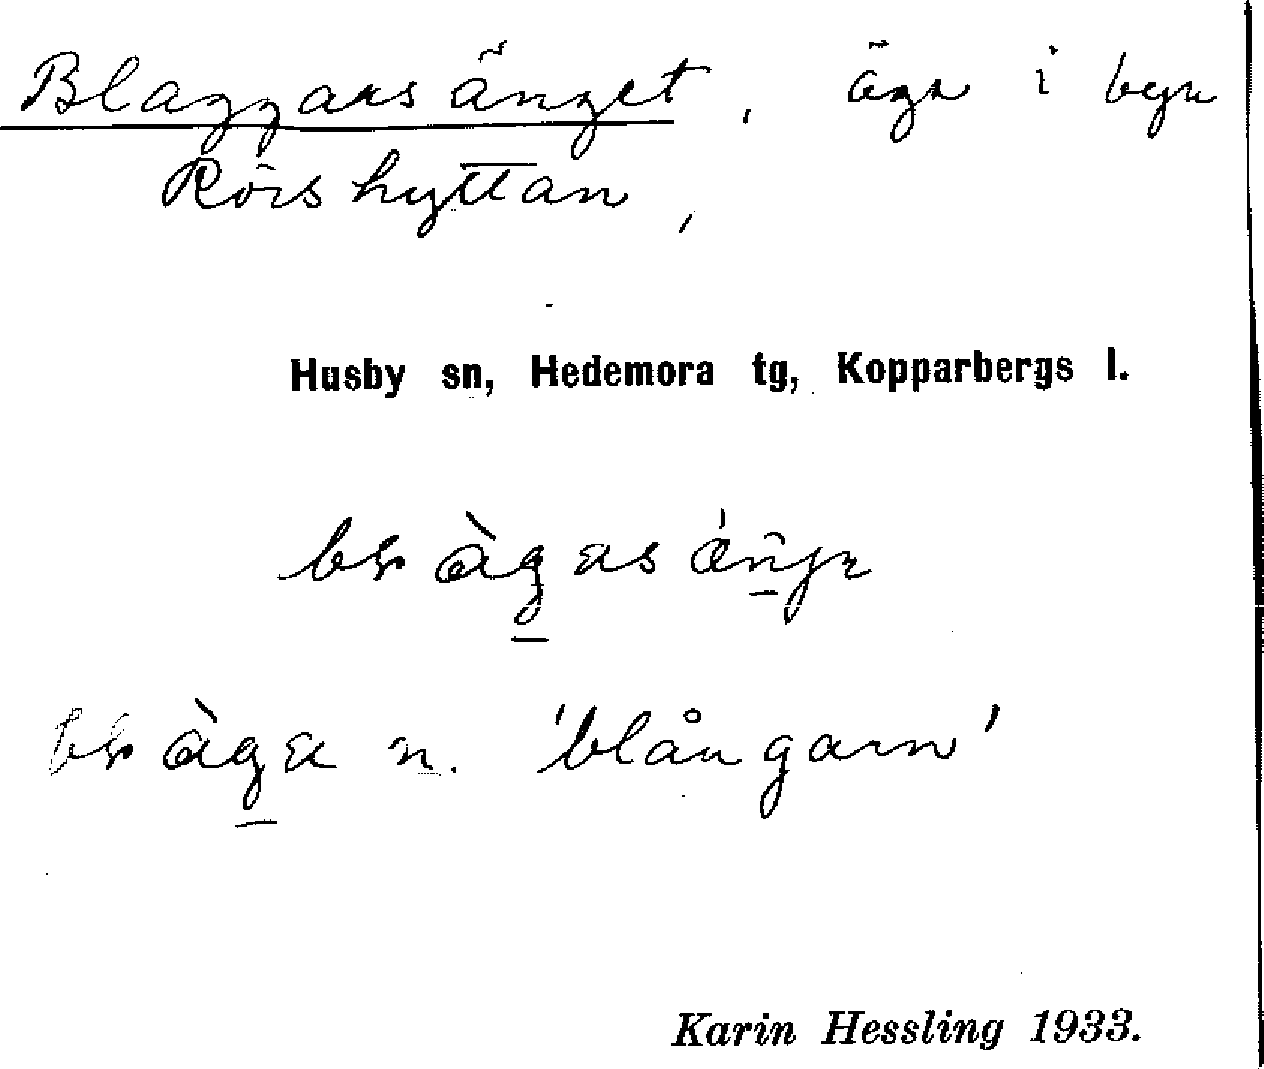 Blaggarsänget, äga i byn
Rörshyttan,
Husby sn, Hedemora tg, Kopparbergs l.
n. 'blångarn'
Karin Hessling 1933.